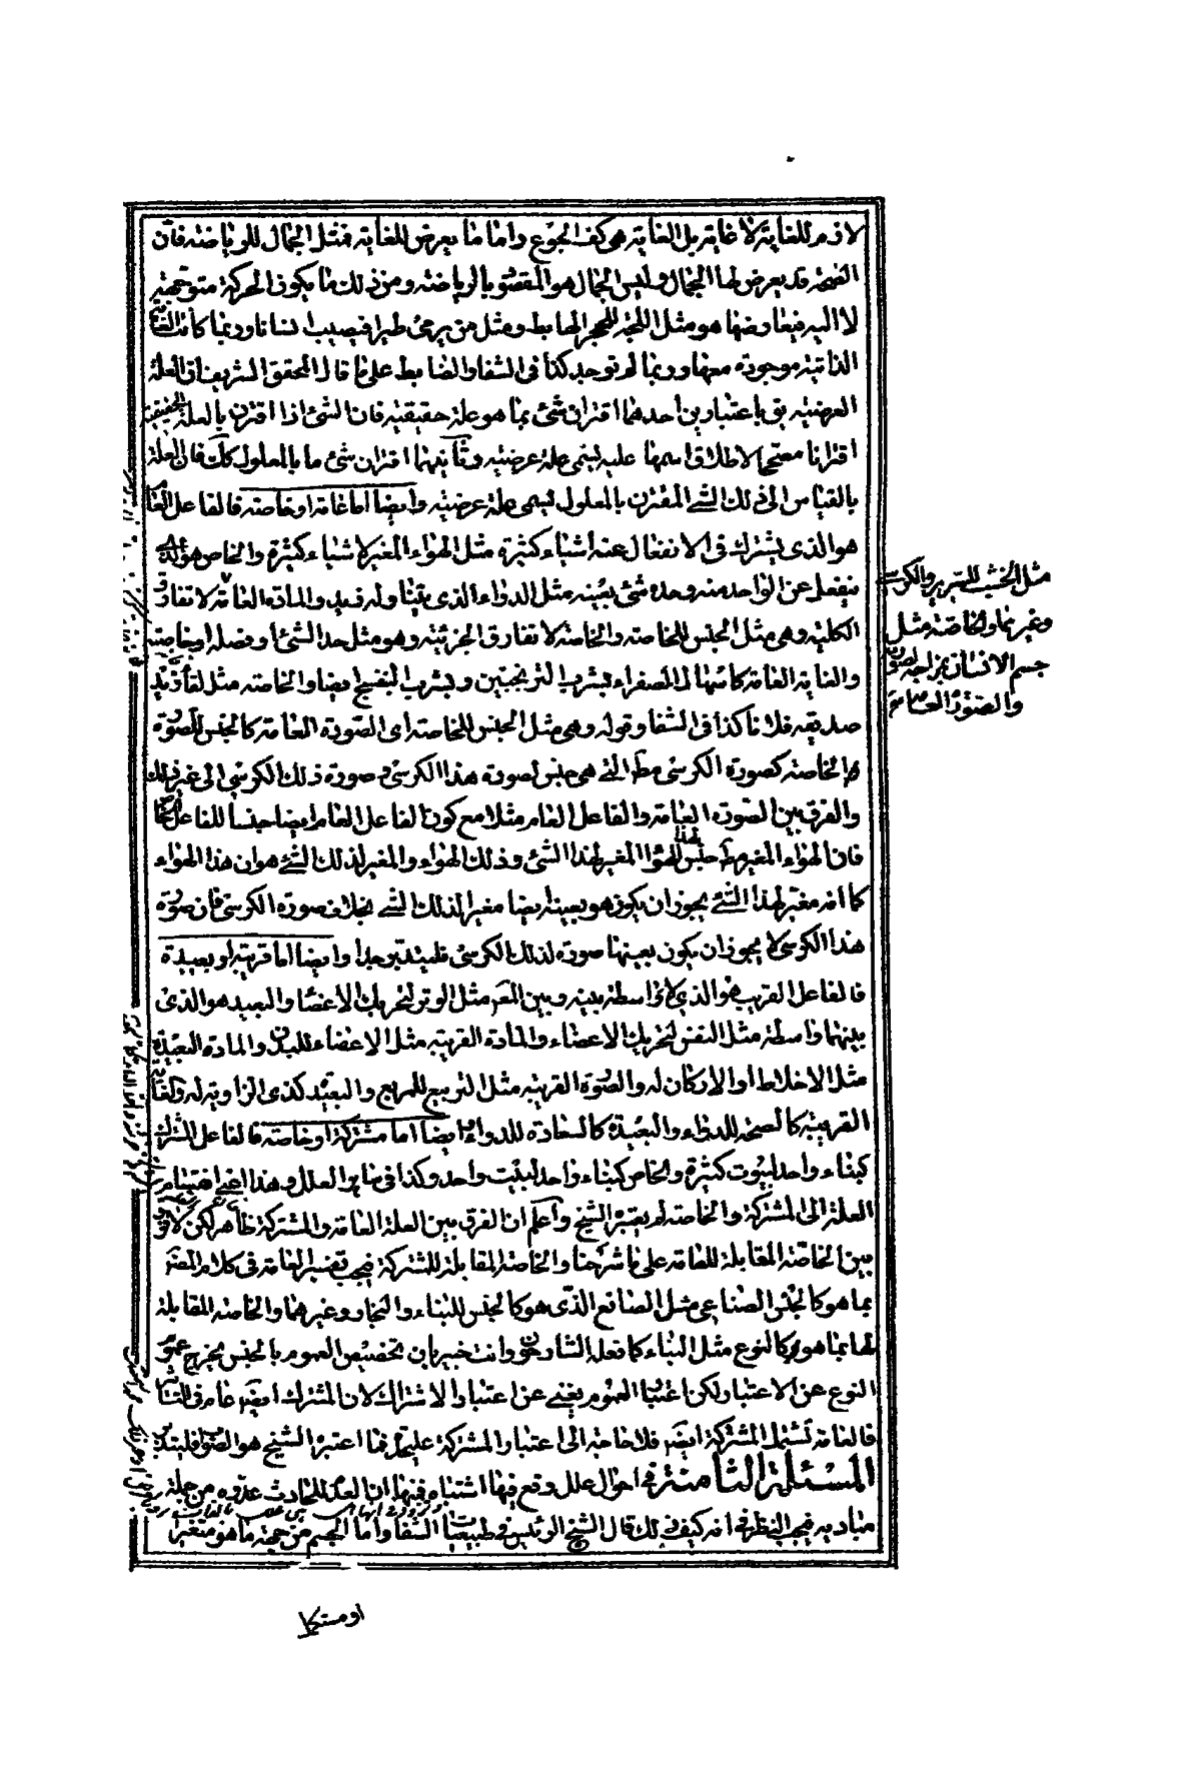 لازم للغاية لا غاية بل الغاية هى كف الجوع واما ما يعرض للغاية فمثل الجمال للرياضة فان
الصحة قد يعرض لها الجمال وليس الجمال هو المقصود بالرياضة ومن ذلك ما يكون الحركة متوجهة
لا اليه فيعارضها هو مثل الشجة للحجر الهابط ومثل من يرمى طيرا فيصيب انسانا وربما كانت الغاية
الذاتية موجودة معها وربما لم توجد كذا فى الشفا والضابط على ما قال المحقق الشريف ان العلة
العرضية يق باعتبارين احدهما اقتران شئ بما هو علة حقيقية فان الشئ اذا اقترن بالعلة الحقيقية
اقترانا مصححا لاطلاق اسمها عليه يسمى علة عرضية وثانيهما اقتران شئ ما بالمعلول كك فان العلة
بالقياس الى ذلك الشئ المقترن بالمعلول تسمى علة عرضية وايضا اما عامة او خاصة فالفاعل العام
هو الذى يشترك فى الانفعال عنه اشياء كثيرة مثل الهواء المغير لاشياء كثيرة والخاص هو الذى
ينفعل عن الواحد منه وحده شئ بعينه مثل الدواء الذى يتناوله زيد والمادة العامة لا تفارق
الكلية وهى مثل الجنس للخاصة والخاصة لا تفارق الجزئية وهو مثل حد الشئ او فصله او خاصته
والغاية العامة كاسهال الصفراء بشرب الترنجبين وبشرب البنفسج ايضا والخاصة مثل لقاء زيد
صديقه فلانا كذا فى الشفا وقوله وهى مثل الجنس للخاصة اى الصورة العامة كالجنس للصورة
الخاصة كصورة الكرسى مط التى هى جنس لصورة هذا الكرسى وصورة ذلك الكرسى الى غير ذلك
والفرق بين الصورة العامة والفاعل العام مثلا مع كون الفاعل العام ايضا جنسا للفاعل الخاص
فان الهواء المغير مط جنس لهذا الهواء المغير لهذا الشئ وذلك الهواء المغير لذلك الشئ هو ان هذا الهواء
كما انه مغير لهذا الشئ يجوز ان يكون هو بعينه ايضا مغيرا لذلك الشئ بخلاف صورة الكرسى فان صورة
هذا الكرسى لا يجوز ان يكون بعينها صورة لذلك الكرسى فليتدبر جدا وايضا اما قريبة او بعيدة
فالفاعل القريب هو الذى لا واسطة بينه وبين المفعول مثل الوتر لتحريك الاعضاء والبعيد هو الذى
بينهما واسطة مثل النفس لتحريك الاعضاء والمادة القريبة مثل الاعضاء للبدن والمادة البعيدة
مثل الاخلاط او الاركان له والصورة القريبة مثل التربيع للمربع والبعيد كذى الزاوية له والغاية
القريبة كالصحة للدواء والبعيدة كالسعادة للدواء وايضا اما مشتركة او خاصة فالفاعل المشترك
كبناء واحد لبيوت كثيرة والخاص كبناء واحد لبيت واحد وكذا فى ساير العلل وهذا اعنى انقسام
العلة الى المشتركة والخاصة لم يعتبره الشيخ واعلم ان الفرق بين العلة العامة والمشتركة ظاهر لكن لا فرق
بين الخاصة المقابلة للعامة على ما شرحنا والخاصة المقابلة للمشتركة فيجب تفسير العامة فى كلام المصنف
بما هو كالجنس الصناعى مثل الصانع الذى هو كالجنس للبناء والنجار وغيرهما والخاصة المقابلة
لها بما هو كالنوع مثل البناء كما فعله الشارحون وانت خبير بان تخصيص العموم بالجنس يخرج عموم
النوع عن الاعتبار ولكن اعتبار العموم يغنى عن اعتبار الاشتراك لان المشترك ايضا عام
فالعامة تشمل المشتركة ايضا فلا حاجة الى اعتبار المشتركة عليحدة فما اعتبره الشيخ هو الصواب فليتدبر
المسئلة الثامنة فى احوال علل وقع فيها اشتباه فمنها ان العدم للحادث عدوه من جملة
مباديه فيجب النظر فى انه كيف ذلك قال الشيخ الرئيس فى طبيعيات الشفا واما الجسم من جهة ما هو متغير
او مستكمل
مثل الخشب للسرير والكرسى
وغيرهما والخاصة مثل
جسم الانسان بمزاجه لصورته
والصورة العامة